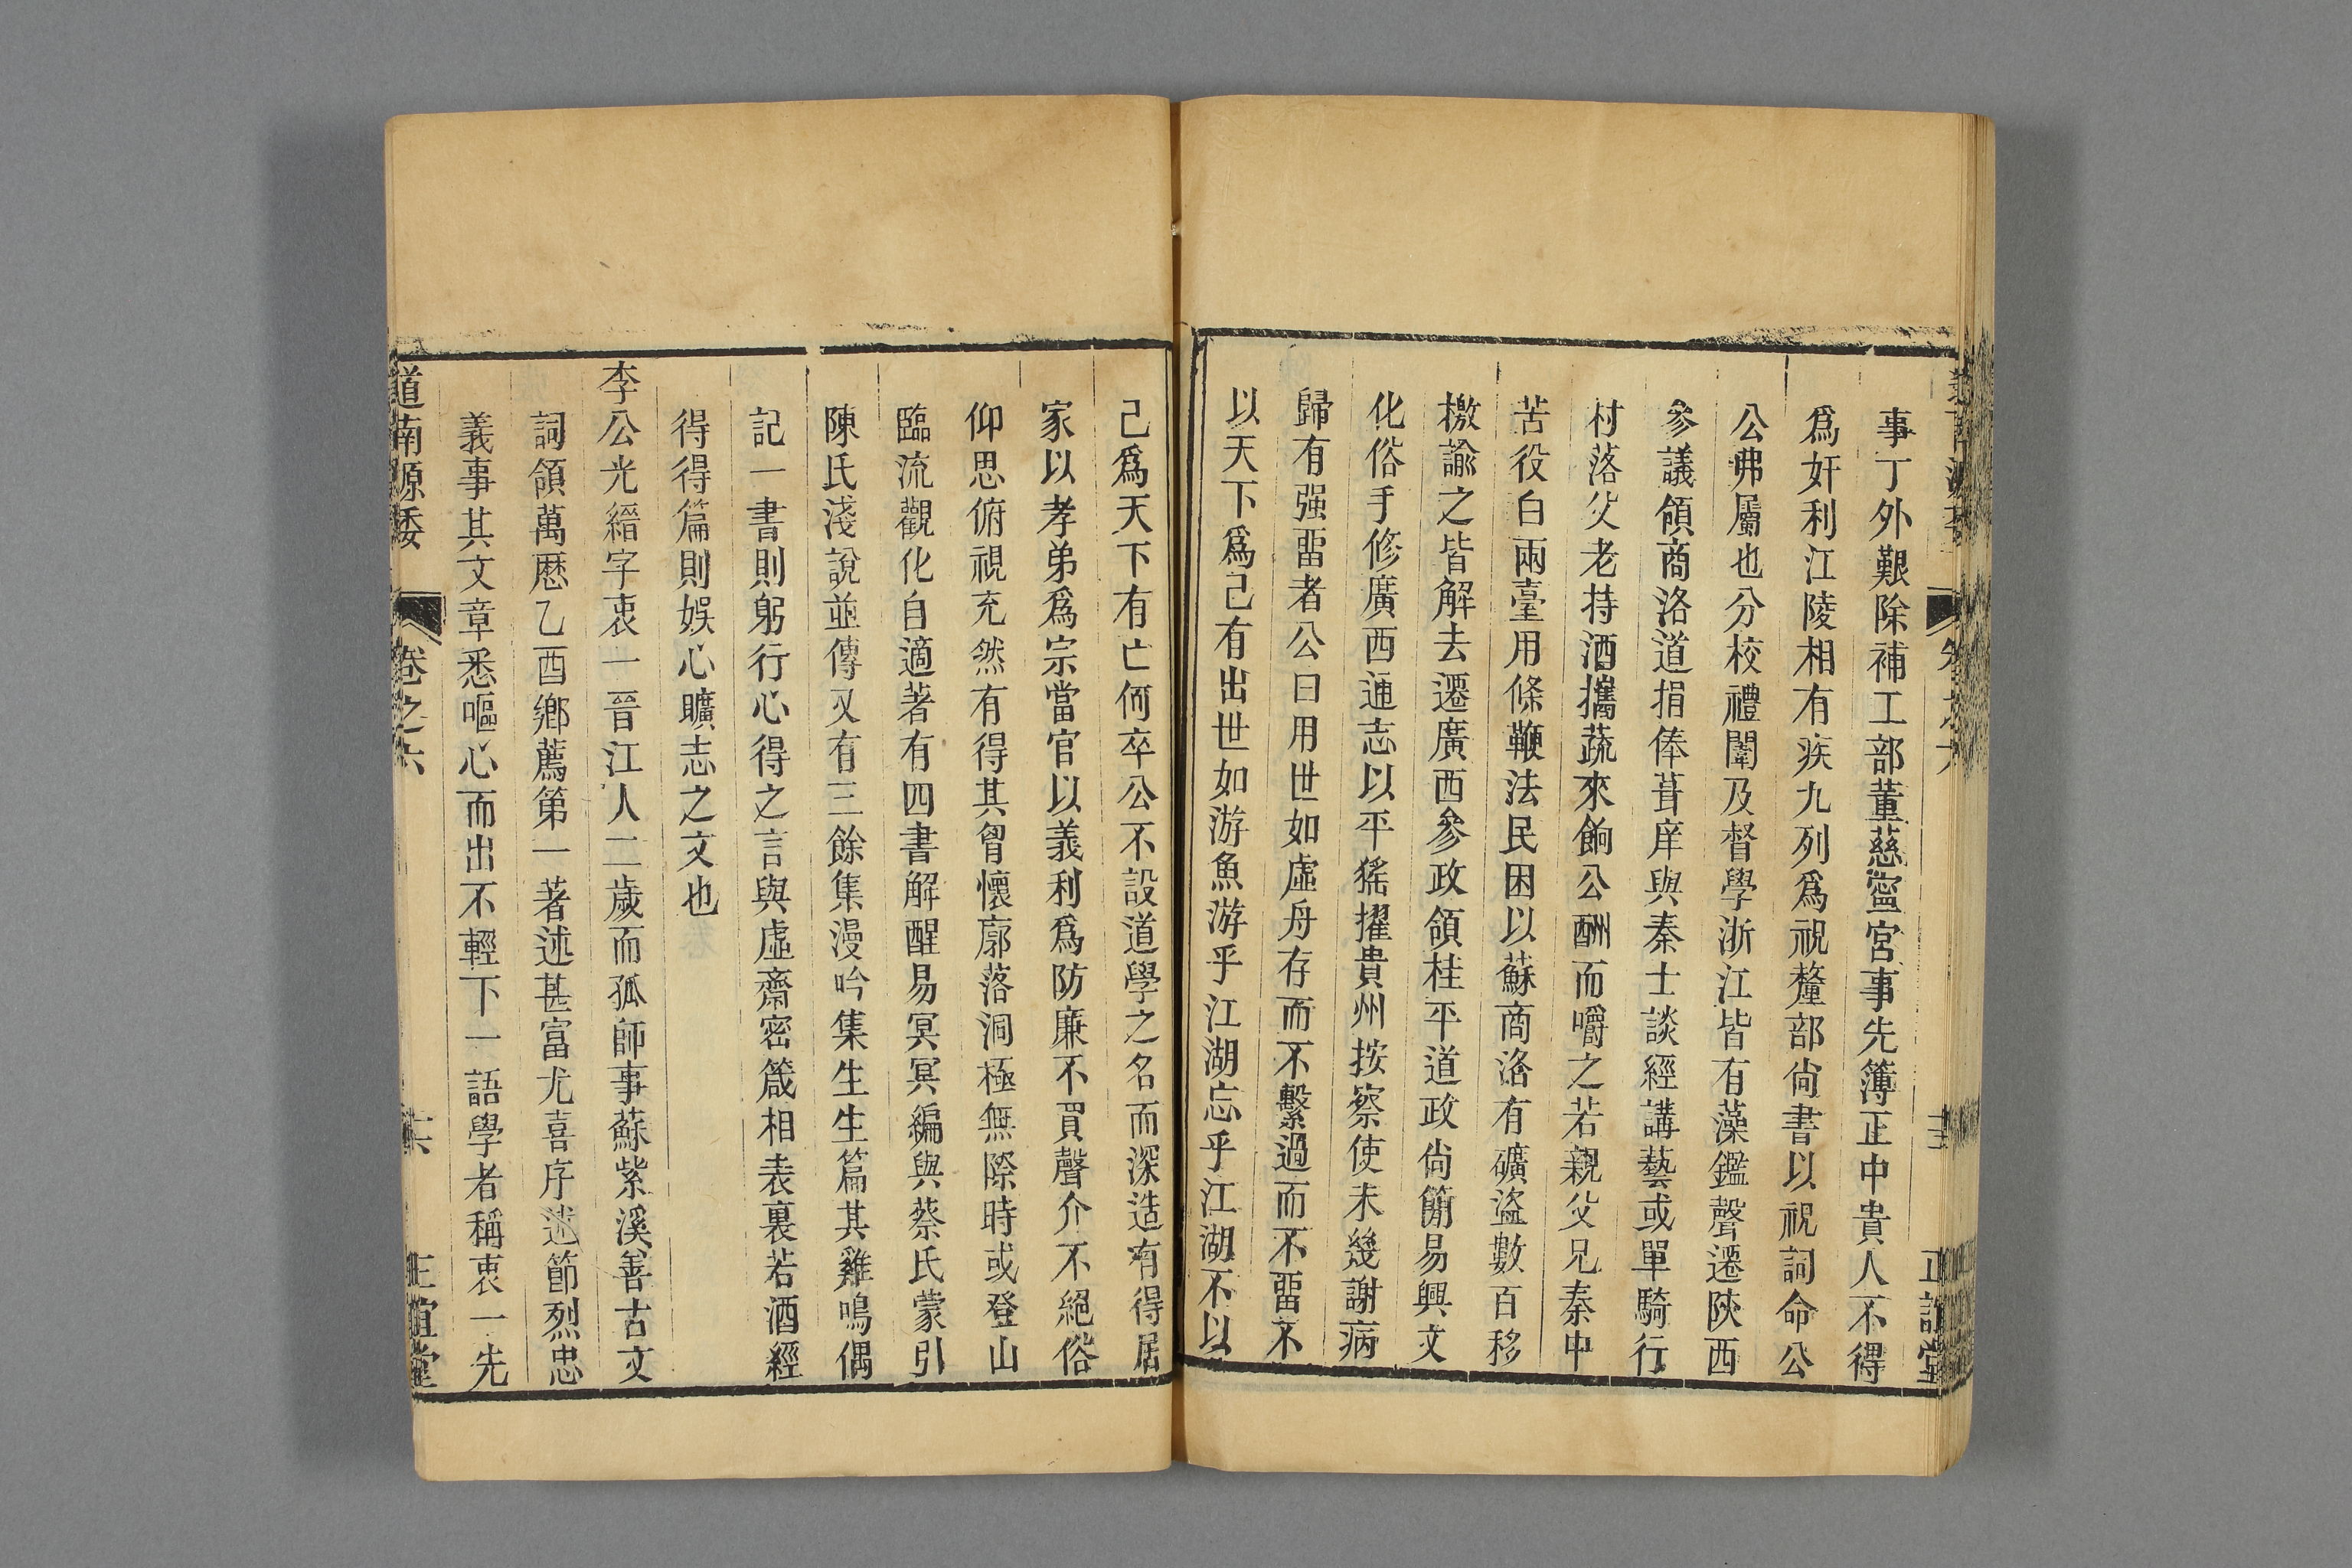 事丁外艱除補工部董慈寧宮事先簿正中貴人不得
爲奸利江陵相有疾九列爲祝釐部尙書以祝詞命公
公弗屬也分校禮闈及督學浙江皆有藻鑑聲遷陝西
參議領商洛道捐俸葺庠與秦士談經講藝或單騎行
村落父老持酒攜蔬來餉公酬而嚼之若親父兄秦中
苦役白兩臺用條鞭法民困以蘇商洛有礦盜數百移
檄諭之皆解去遷廣西參政領桂平道政尙簡易興文
化俗手修廣西通志以平猺擢貴州按察使未幾謝病
歸有强畱者公曰用世如虛舟存而不繫過而不畱不
以天下爲己有出世如游魚游乎江湖忘乎江湖不以
己爲天下有亡何卒公不設道學之名而深造有得居
家以孝弟爲宗當官以義利爲防廉不買聲介不絕俗
仰思俯視充然有得其胷懷廓落洞極無際時或登山
臨流觀化自適著有四書解醒易冥冥編與蔡氏蒙引
陳氏淺說並傳又有三餘集漫吟集生生篇其雞鳴偶
記一書則躬行心得之言與虛齋密箴相表裏若酒經
得得篇則娛心曠志之文也
李公光縉字衷一晉江人二歲而孤師事蘇紫溪善古文
詞領萬曆乙酉鄉薦第一著述甚富尤喜序述節烈忠
義事其文章悉嘔心而出不輕下一語學者稱衷一先
道南源委 卷之六 正誼堂